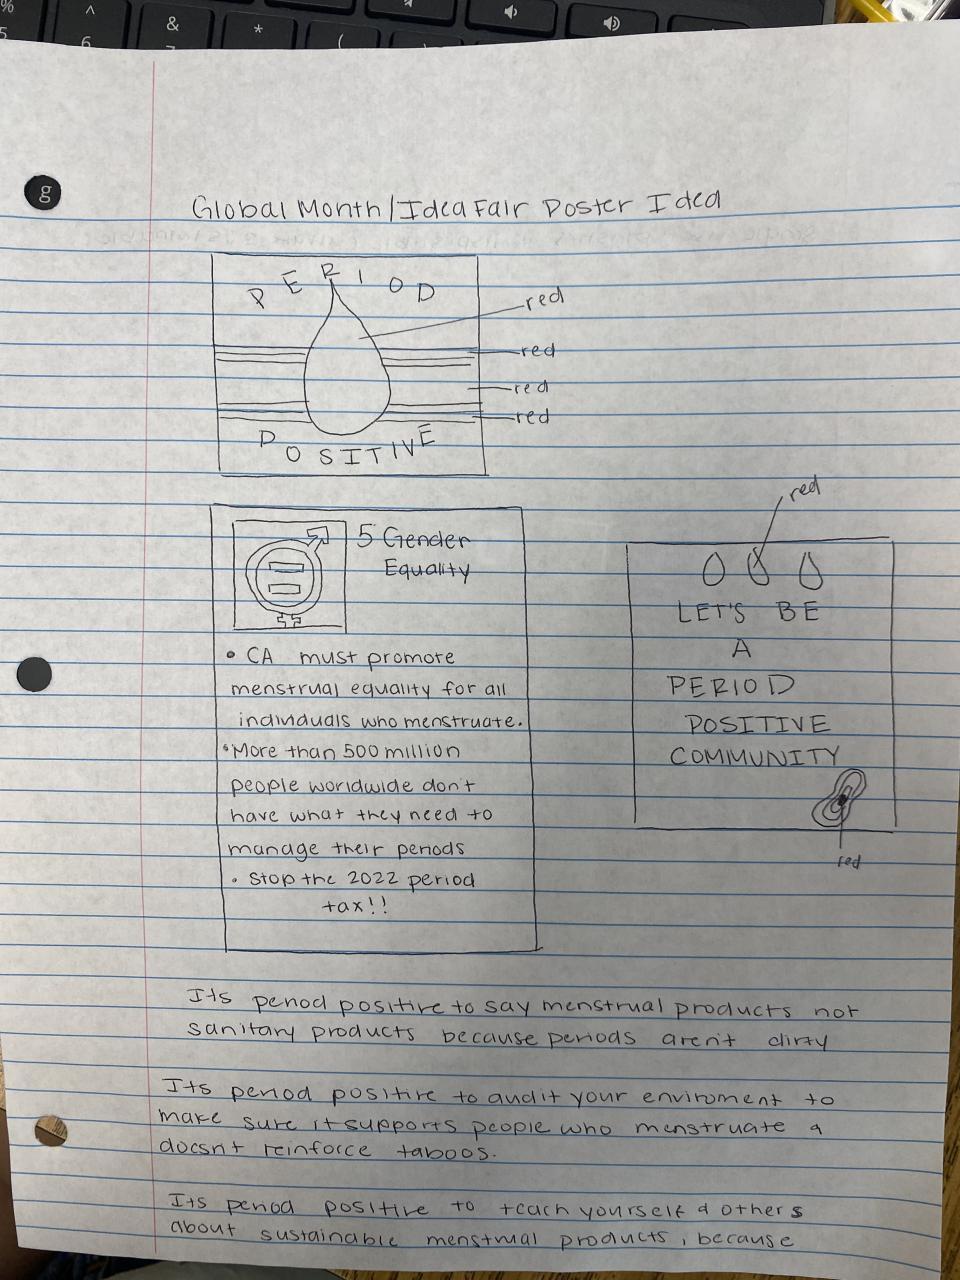 Global Month/Idea Fair Poster Idea
PERIOD
red
red
red
red
POSITIVE
5 Gender
Equality
• CA must promote
menstrual equality for all
individuals who menstruate.
• More than 500 million
people worldwide don't
have what they need to
manage their periods
• Stop the 2022 period
tax!!
red
LET'S BE
A
PERIOD
POSITIVE
COMMUNITY
red
Its period positive to say menstrual products not
sanitary products because periods aren't dirty
Its period positive to audit your enviroment to
make sure it supports people who menstruate &
doesn't reinforce taboos.
Its period positive to teach yourself & others
about sustainable menstrual products, because
g
%
5
^
6
&
7
*
(